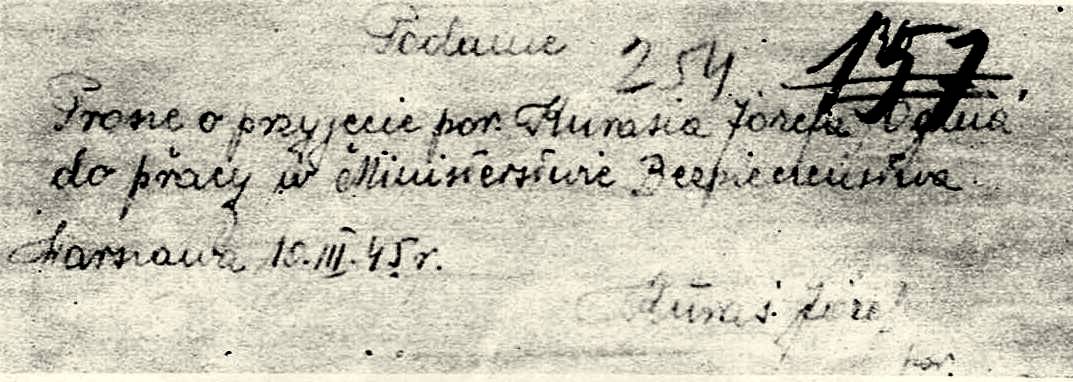 Podanie 254 157
Proszę o przyjęcie por. Kurasia Józefa „Ognia”
do pracy w Ministerstwie Bezpieczeństwa
Warszawa 10.III.45 r.
Kuraś Józef
por.